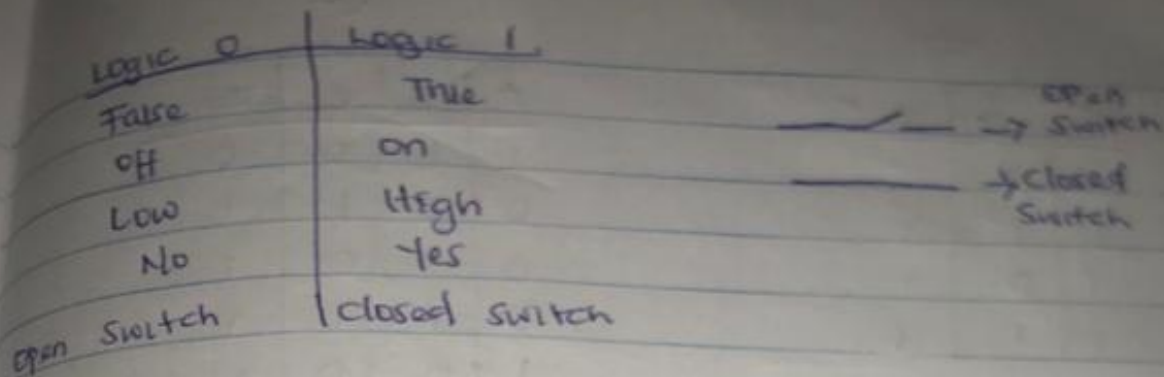 Logic 0 Logic 1.
False True
Off on
Low High
No Yes
open Switch closed switch
open
Switch
closed
Switch